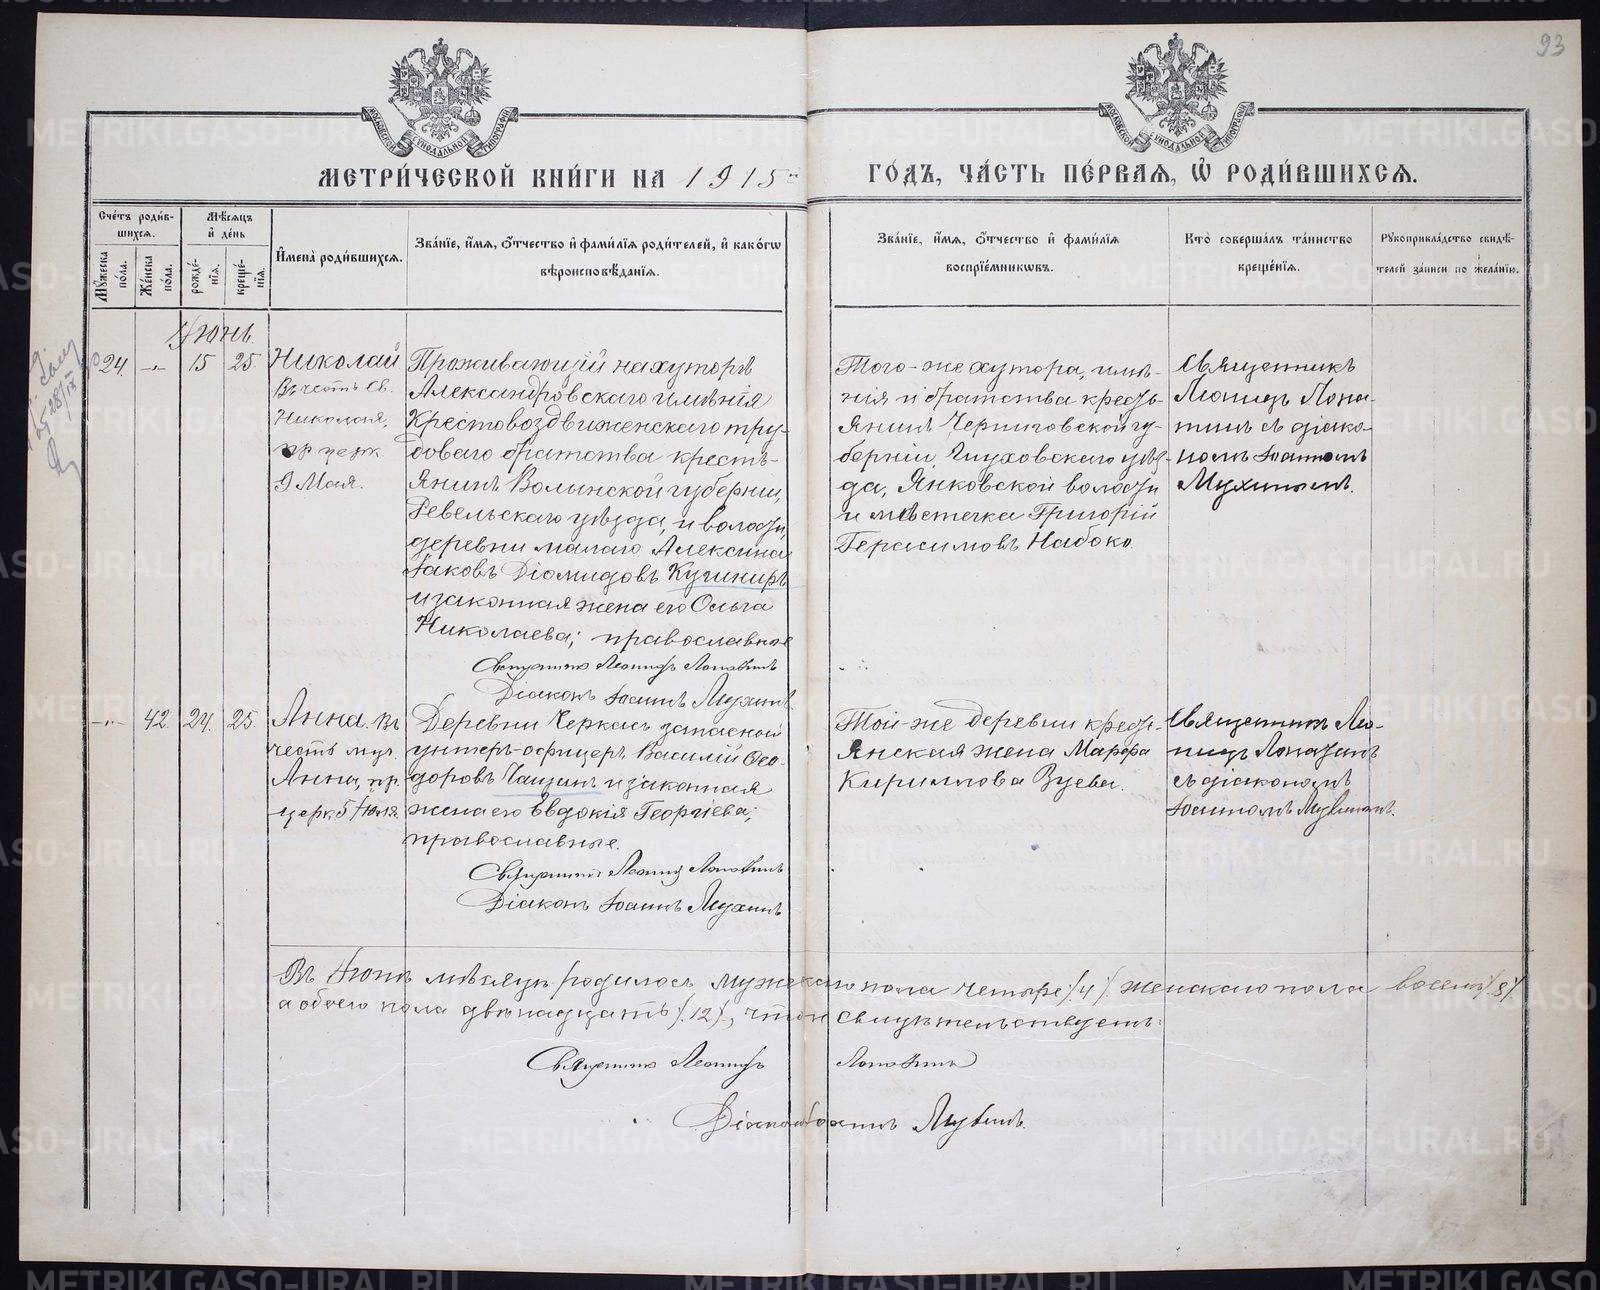 93
МЕТРИ́ЧЕСКОЙ КНИ́ГИ НА 1915й ГО́ДЪ, ЧА́СТЬ ПЕ́РВАЯ, Ѡ РОДИ́ВШИХСЯ.
Сче́тъ роди́в-
шихся.
Мѣ́сяцъ
и́ де́нь
Му́жеска
по́ла.
Же́нска
по́ла.
рожде́-
нїя.
креще́-
нїя.
И҆мена̀ роди́вшихся.
Зва́нїе, и҆́мя, ѻ҆́тчество и҆ фами́лїя роди́телей, и҆ како́гѡ
вѣроисповѣ́данїя.
Зва́нїе, и҆́мя, ѻ҆́тчество и҆ фами́лїя
воспрїе́мникѡвъ.
Кто̀ соверша́лъ та́инство
креще́нїя.
Рукоприкла́дство свидѣ́-
телей за́писи по жела́нїю.
Іюнь.
24. -„- 15 25.
Николай
Въ честь Св.
Николая,
пр. церк.
9 Мая.
Проживающій на хуторѣ
Александровскаго имѣнія
Крестовоздвиженскаго тру-
доваго братства кресть-
янинъ Волынской губерніи,
уѣзда, и волости,
деревни малаго Алексина
Іаковъ Діомидовъ Кушниръ
и законная жена его Ольга
Николаева; православные
Священникъ Леонидъ Лопатинъ
Діаконъ Іоаннъ Мухинъ
Того-же хутора, имѣ-
нія и братства кресть-
янинъ Черниговской гу-
берніи, Глуховскаго уѣз-
да, Янковской волости
и мѣстечка Григорій
Герасимовъ Набоко.
Священникъ
Леонидъ Лопа-
тинъ съ діако-
номъ Іоанномъ
Мухинымъ.
-„- 42. 24. 25.
Анна. въ
честь муч.
Анны, пр.
церк. 5 Іюля.
Деревни Черкасъ запасной
унтеръ-офицеръ Василій Ѳео-
доровъ Чащинъ и законная
жена его Евдокія Георгіева;
православные.
Священникъ Леонидъ Лопатинъ
Діаконъ Іоаннъ Мухинъ
Той-же деревни кресть-
янская жена Марѳа
Кириллова Зуева.
Священникъ Лео-
нидъ Лопатинъ
съ діакономъ
Іоанномъ Мухинымъ.
Въ Іюнѣ мѣсяцѣ родилось мужескаго пола четыре /.4/. женскаго пола восемь /.8/.
а обоего пола двѣнадцать /.12/., что и свидѣтельствуетъ:
Священникъ Леонидъ Лопатинъ
Діаконъ Іоаннъ Мухинъ.
METRIKI.GASO-URAL.RU